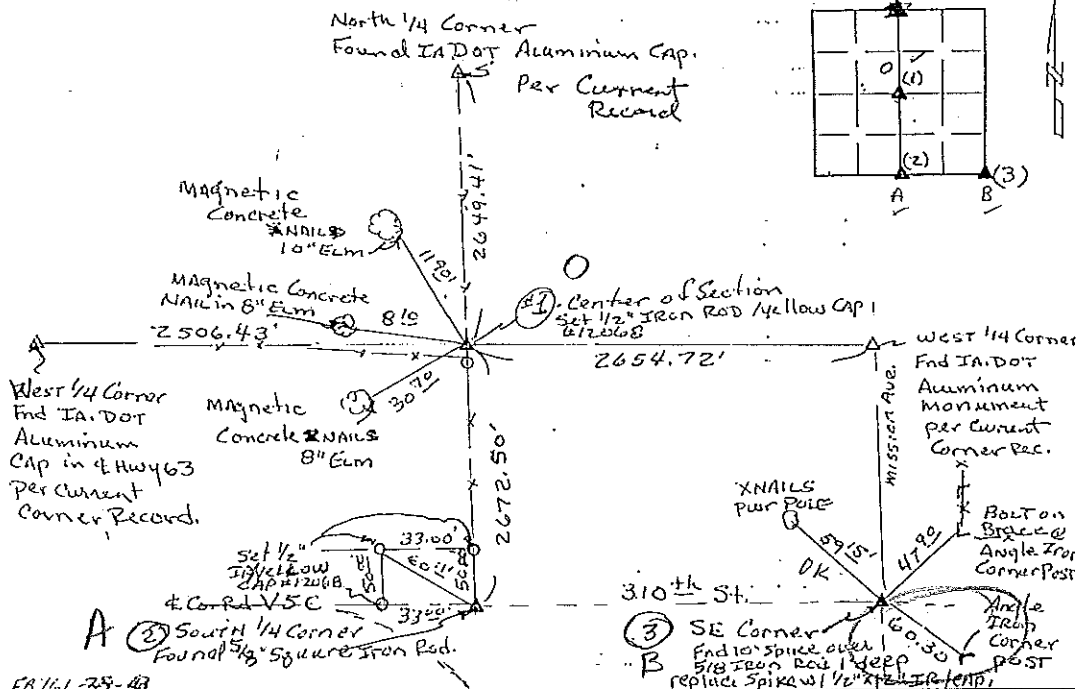 North 1/4 Corner
Found IA DOT Aluminium CAP.
Per Current
Record
O
(1)
(2)
(3)
A
B
2649.41'
Magnetic
Concrete
XNAILS
10" Elm
1190'
Magnetic Concrete
NAIL in 8" Elm
8 10
O
#1 Center of Section
Set 1/2" IRON ROD /Yellow CAP
#12068
2506.43'
2654.72'
West 1/4 Corner
Fnd IA. DOT
Aluminum
CAP in ℄ HWY 63
per current
Corner Record.
Magnetic
Concrete XNAILS
8" Elm
30 70
2672.50'
West 1/4 Corner
Fnd IA. DOT
Aluminum
Monument
per Current
Corner Rec.
Mission Ave.
XNAILS
PWR POLE
59 15'
OK
47 90
BOLT on
Brace @
Angle Iron
Corner Post
Set 1/2"
IR/Yellow
CAP #12068
33.00'
60.1'
33.00'
℄ Co. Rd. V5C
310th St.
A (2) South 1/4 Corner
Found 5/8" Square Iron Rod.
(3) SE Corner
B
Fnd 10" Spike over
5/8 Iron Rod 1' deep
replace Spike w/ 1/2" x 12" IR/CAP,
60.30
Angle
Iron
Corner
POST